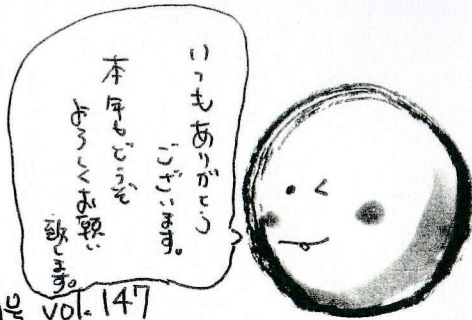 いつもありがとう
ございます。
本年もどうぞ
よろしくお願い
致します。
号 vol. 147